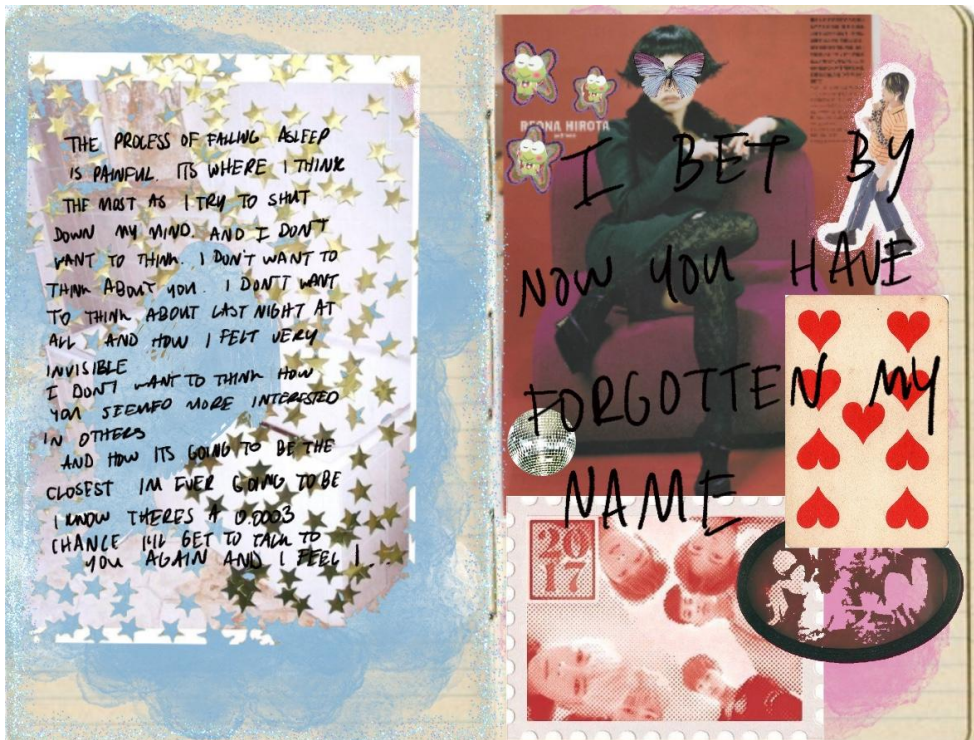 THE PROCESS OF FALLING ASLEEP
IS PAINFUL. ITS WHERE I THINK
THE MOST AS I TRY TO SHUT
DOWN MY MIND. AND I DON'T
WANT TO THINK. I DON'T WANT TO
THINK ABOUT YOU. I DON'T WANT
TO THINK ABOUT LAST NIGHT AT
ALL AND HOW I FELT VERY
INVISIBLE
I DON'T WANT TO THINK HOW
YOU SEEMED MORE INTERESTED
IN OTHERS
AND HOW ITS GOING TO BE THE
CLOSEST IM EVER GOING TO BE
I KNOW THERES A 0.0003
CHANCE I'LL GET TO TALK TO
YOU AGAIN AND I FEEL I...
REONA HIROTA
I BET BY
NOW YOU HAVE
FORGOTTEN MY
NAME
20
17